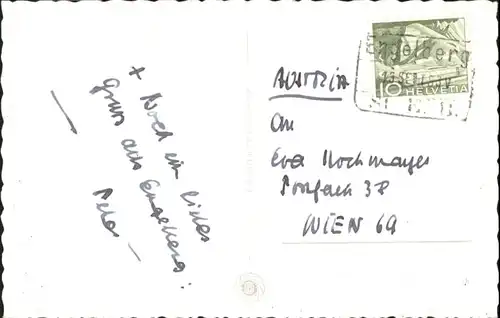 + Noch ein liebes
gruss aus Engelberg.
Peter
AUSTRIA
An
Eva Hochmayer
Postfach 38
WIEN 69
Engelberg
10 HELVETIA